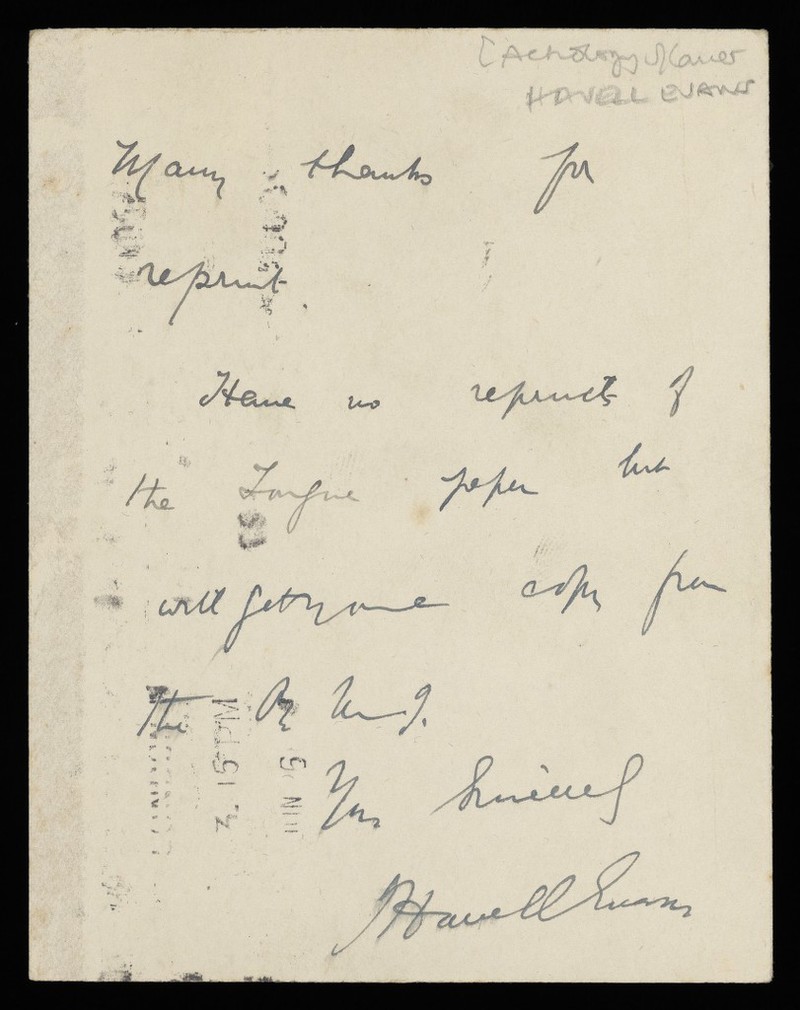 [Aetiology of Cancer
HAVELL EVANS
Many thanks for
reprint
Have no reprints of
the Tongue paper but
will get you a copy from
the
Yrs Sincerely
Havell Evans
3. 15 PM
JUN 5